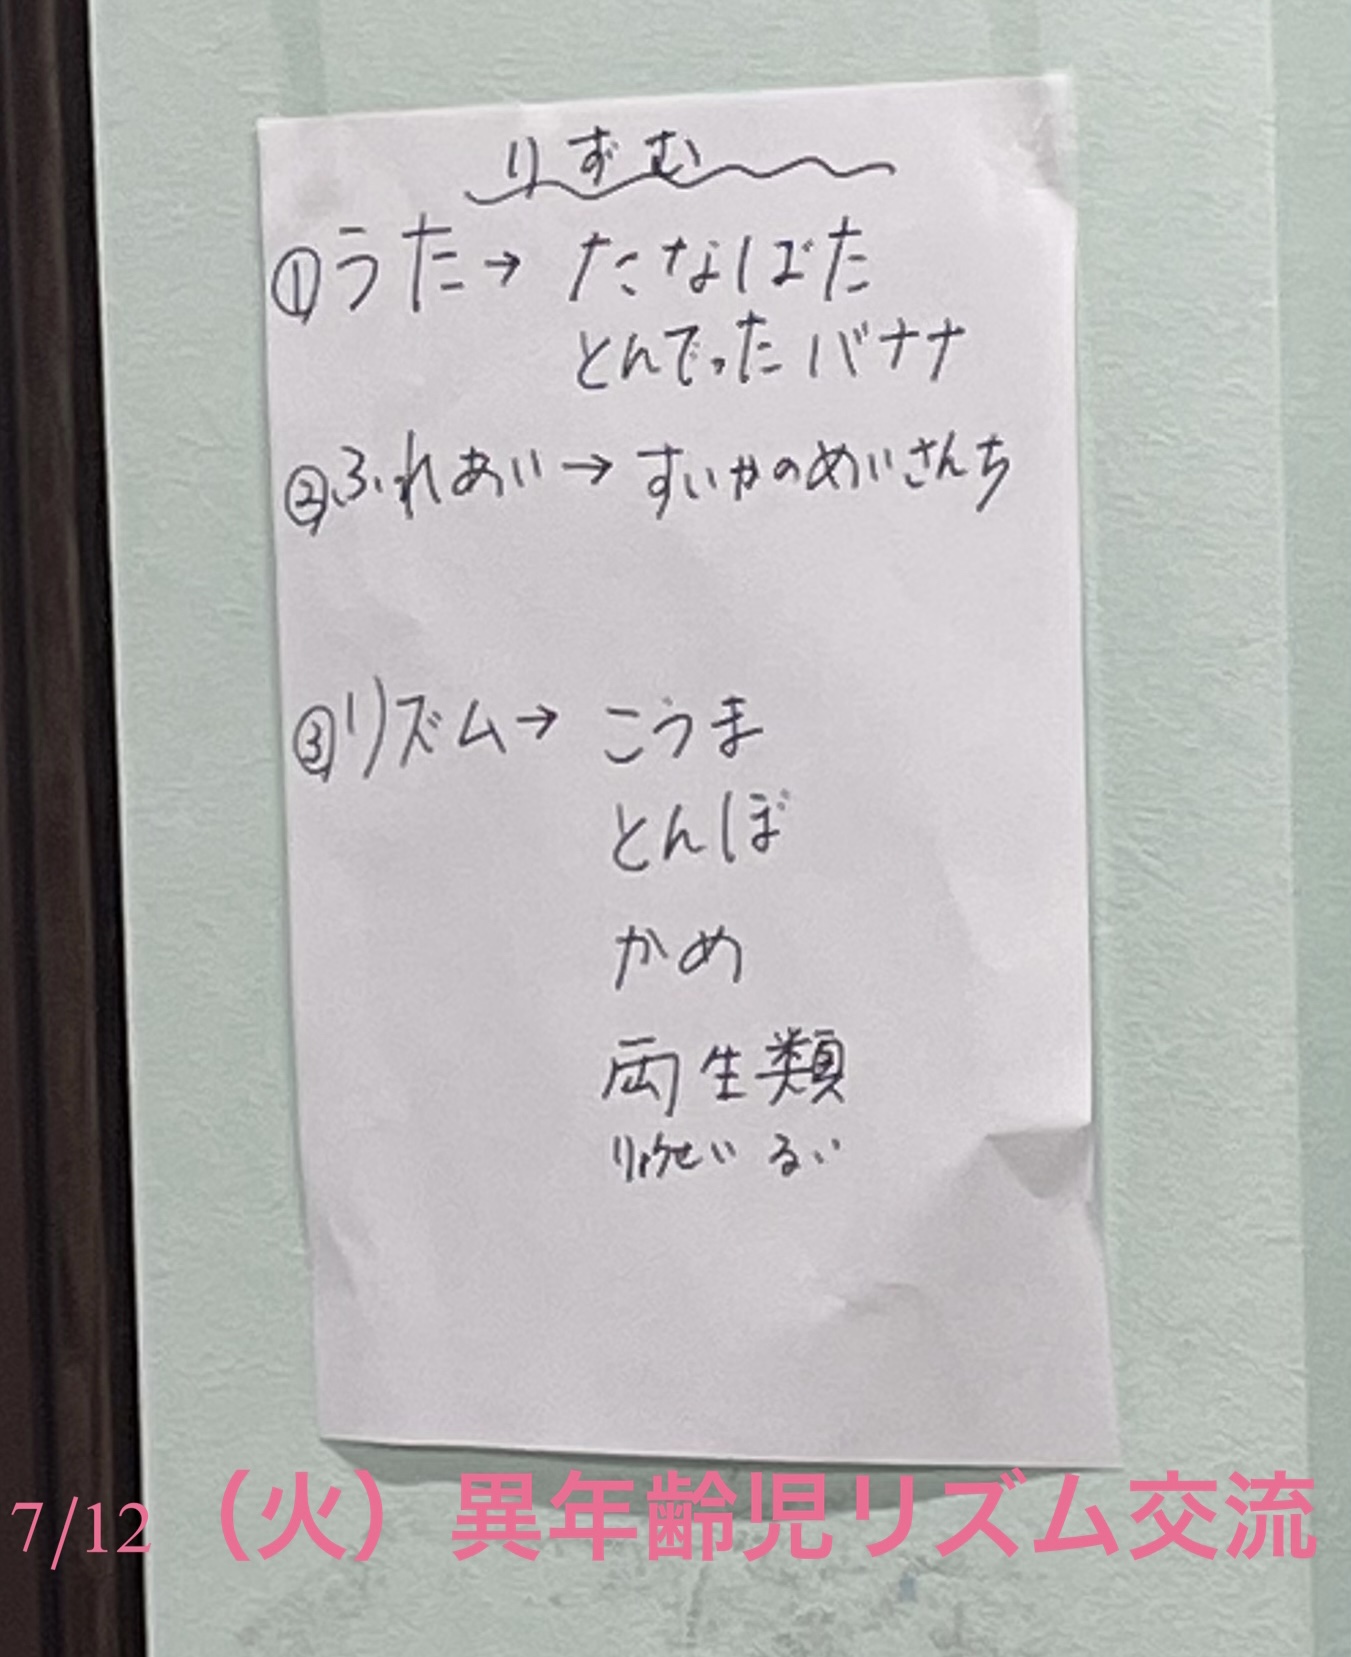 りずむ
①うた→たなばた
とんでったバナナ
②ふれあい→すいかのめいさんち
③リズム→こうま
とんぼ
かめ
両生類
りょうせいるい
7/12（火）異年齢児リズム交流